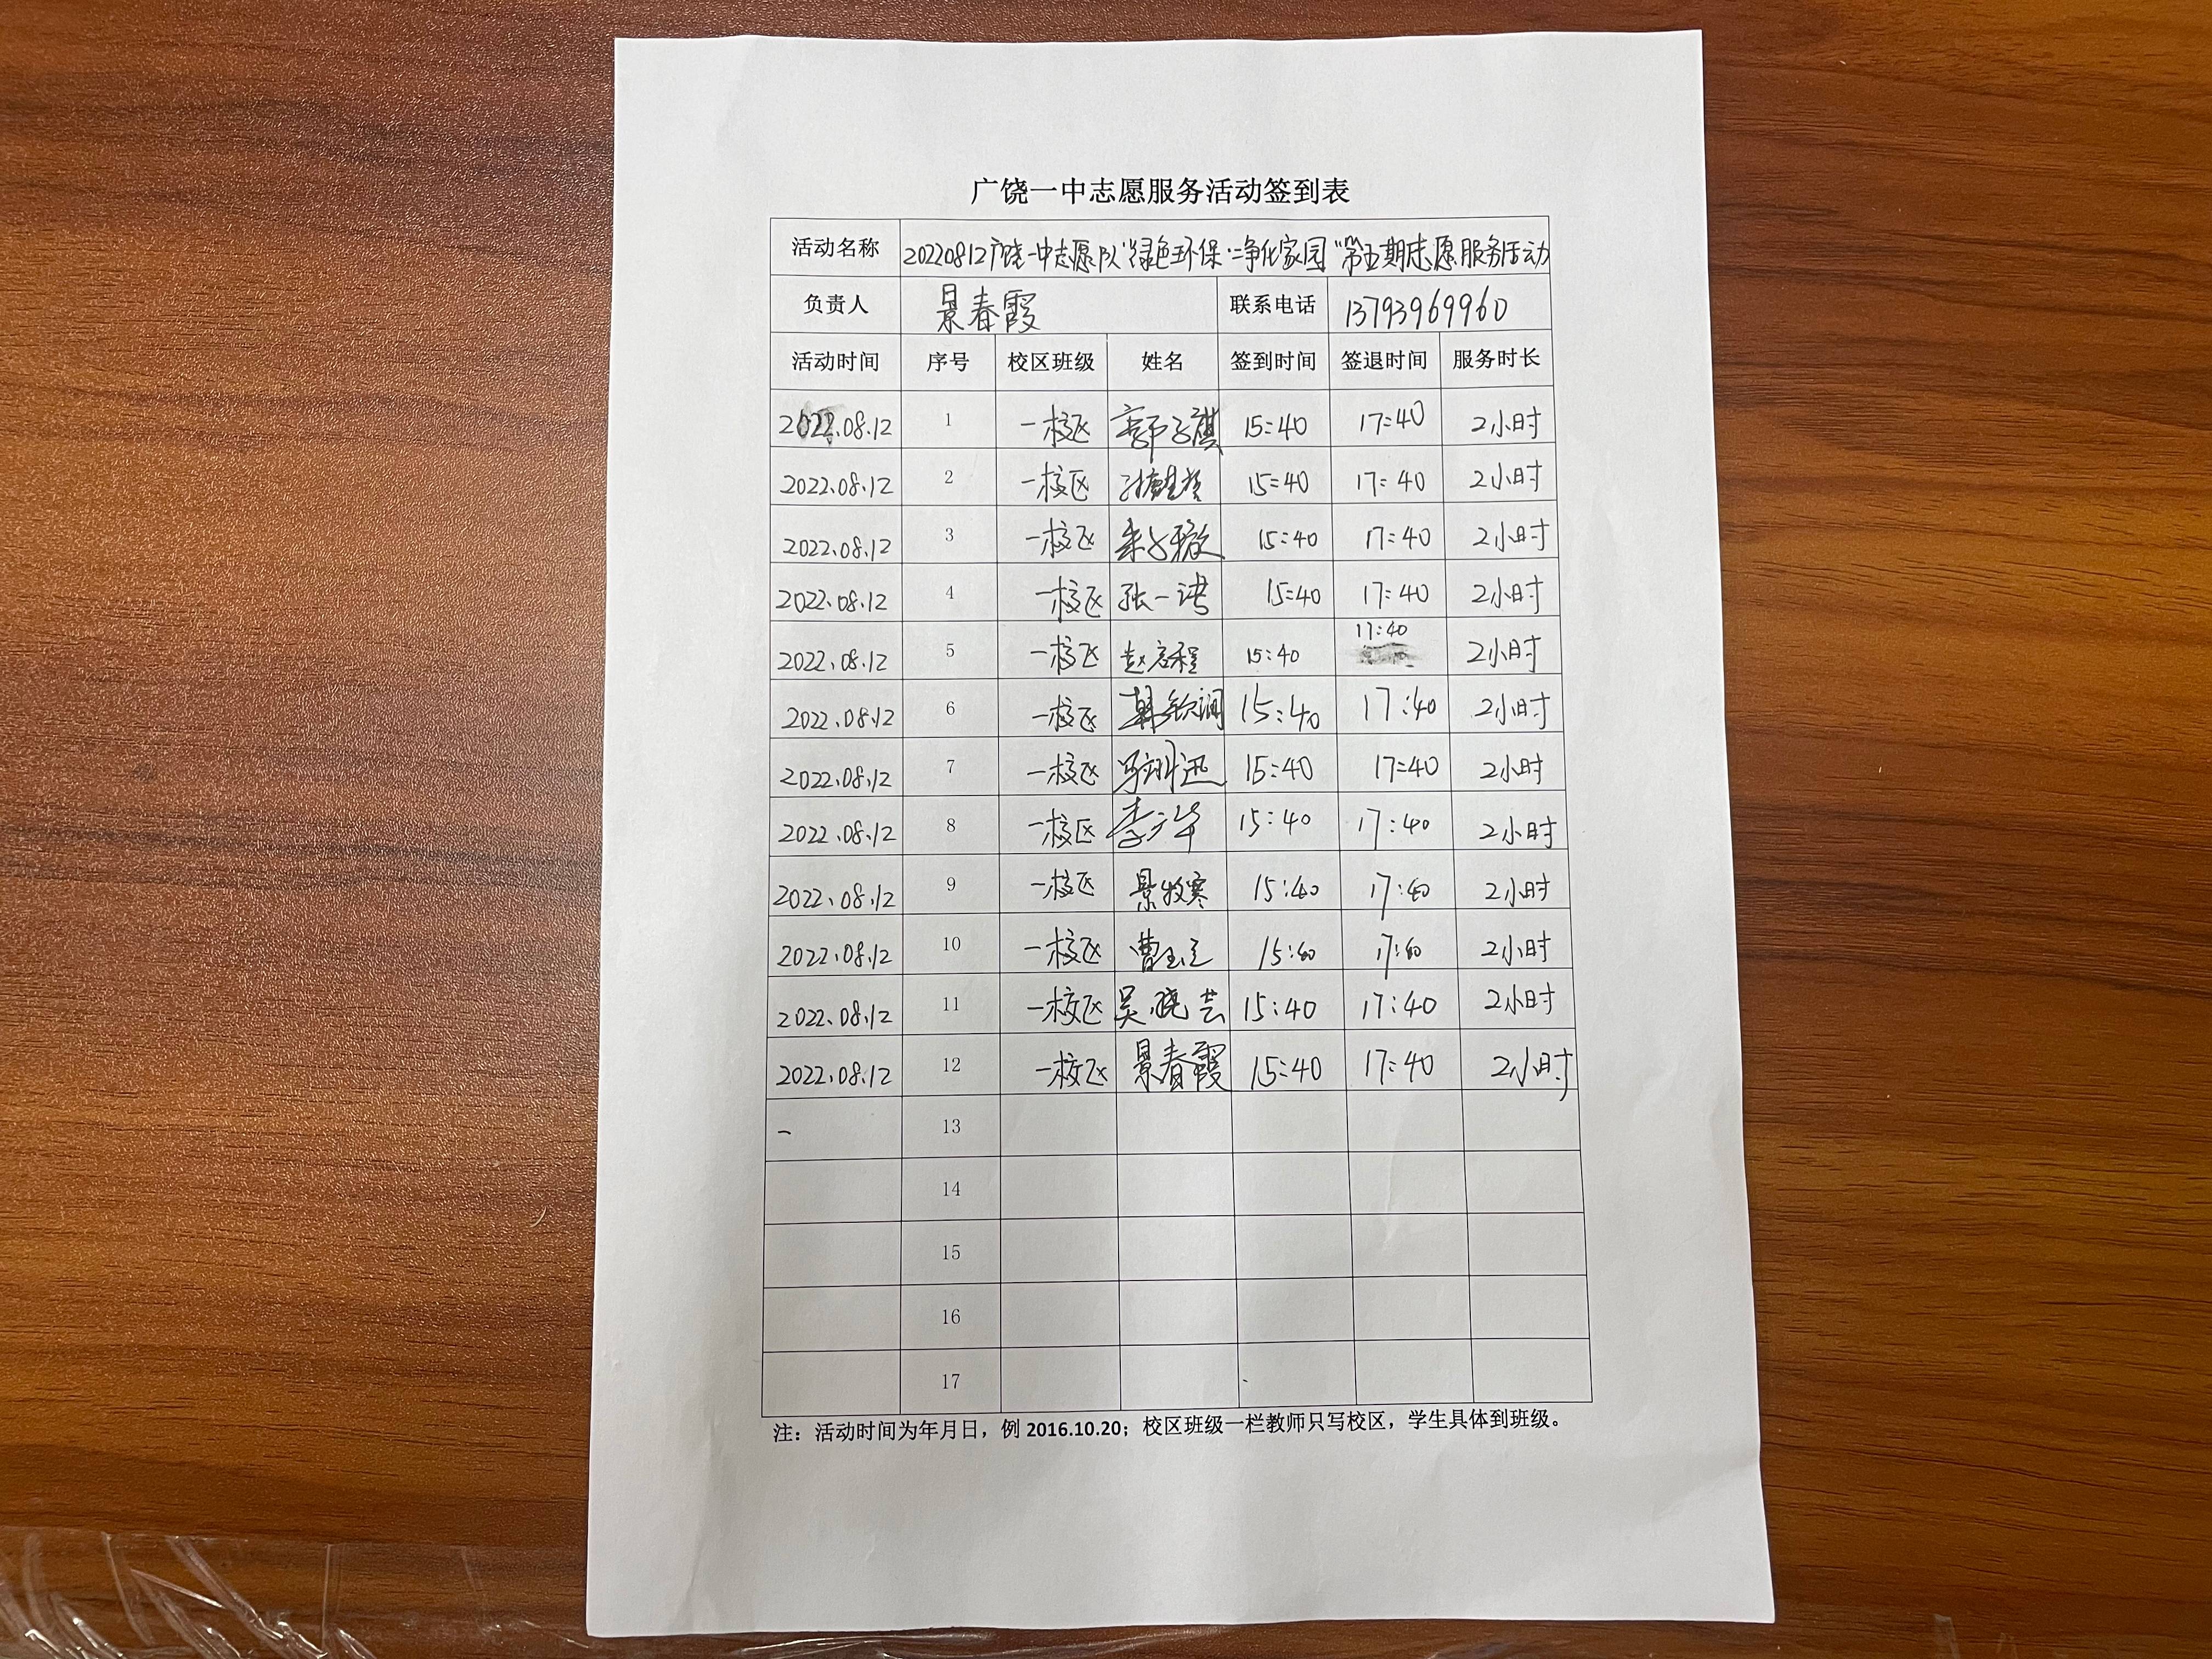 广饶一中志愿服务活动签到表
活动名称 20220812广饶一中志愿队“绿色环保·净化家园”第五期志愿服务活动
负责人 景春霞 联系电话 13793969960
活动时间 序号 校区班级 姓名 签到时间 签退时间 服务时长
2022.08.12 1 一校区 郭子祺 15:40 17:40 2小时
2022.08.12 2 一校区 15:40 17:40 2小时
2022.08.12 3 一校区 15:40 17:40 2小时
2022.08.12 4 一校区 张一 15:40 17:40 2小时
2022.08.12 5 一校区 赵启程 15:40 17:40 2小时
2022.08.12 6 一校区 韩钦润 15:40 17:40 2小时
2022.08.12 7 一校区 15:40 17:40 2小时
2022.08.12 8 一校区 李 15:40 17:40 2小时
2022.08.12 9 一校区 景牧寒 15:40 17:40 2小时
2022.08.12 10 一校区 曹 15:40 17:40 2小时
2022.08.12 11 一校区 吴晓芸 15:40 17:40 2小时
2022.08.12 12 一校区 景春霞 15:40 17:40 2小时
13
14
15
16
17
注：活动时间为年月日，例 2016.10.20；校区班级一栏教师只写校区，学生具体到班级。